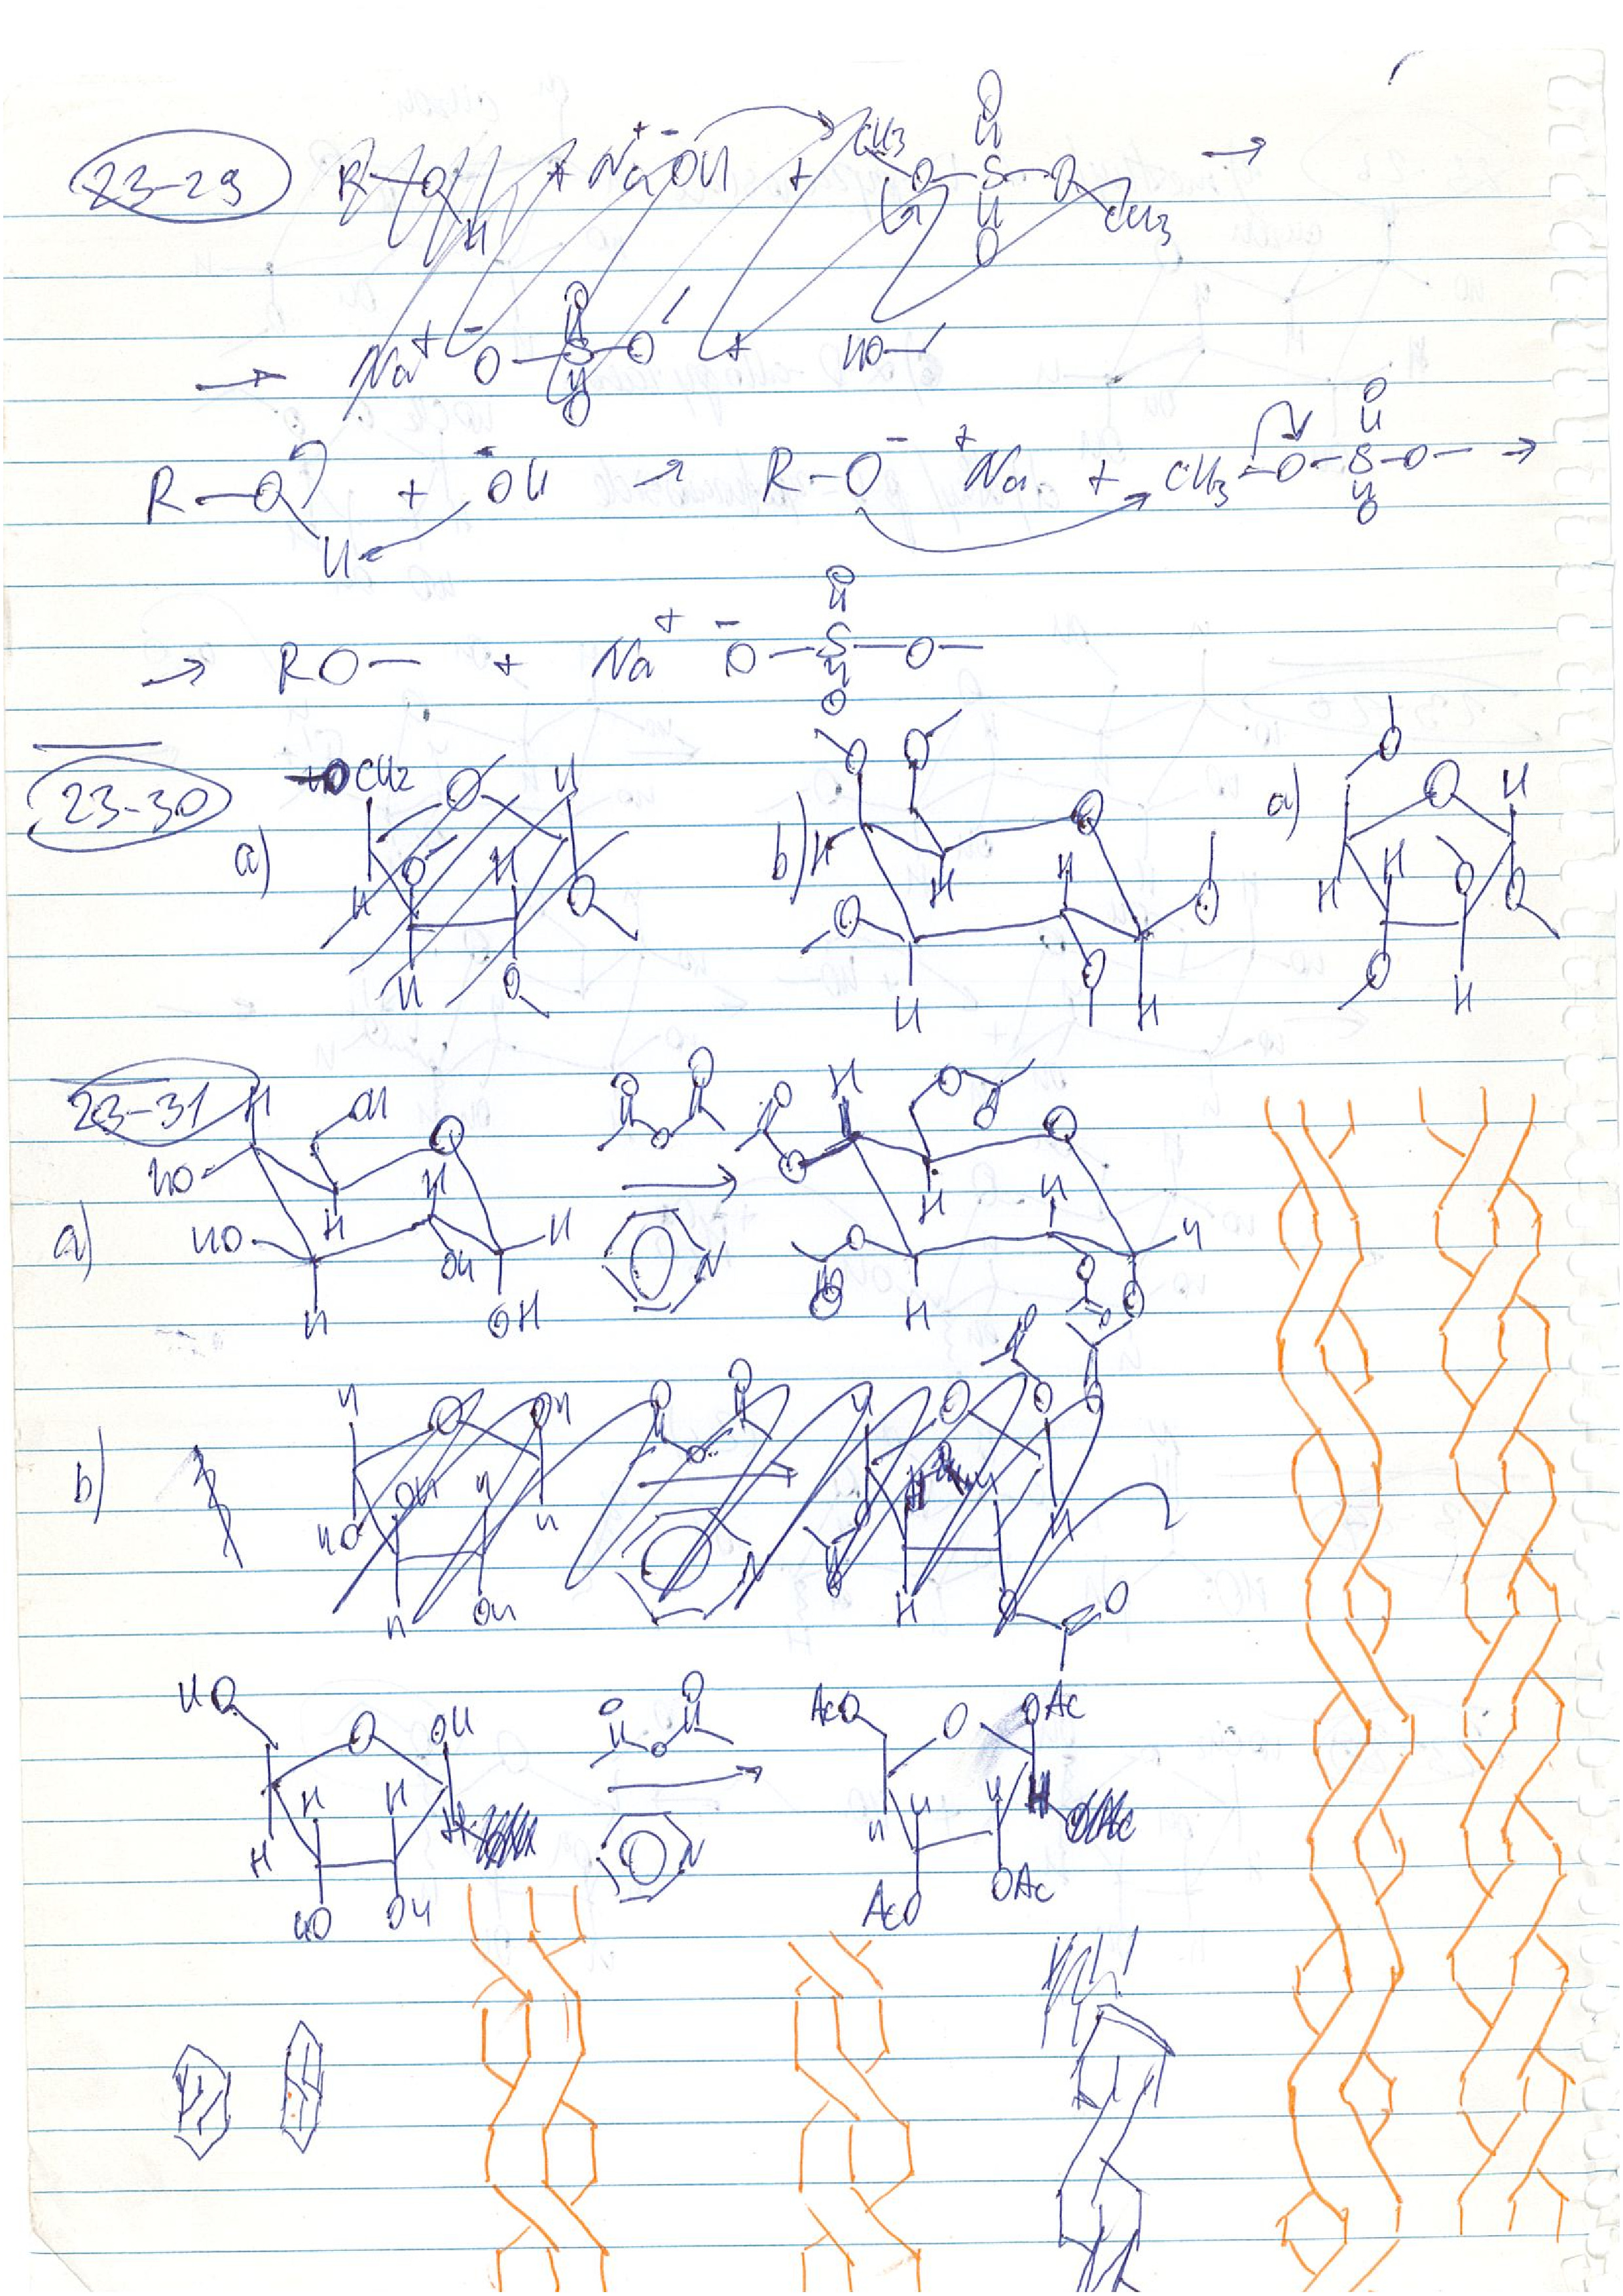 23-29 R-O-H + Na⁺ ⁻OH + CH3 O S O CH3 →
O O
→ Na⁺ ⁻O-S-O + HO
O O
R-O-H + ⁻OH → R-O⁻ ⁺Na + CH3-O-S-O- →
O O
→ RO- + Na⁺ ⁻O-S-O-
O O
23-30
a) HOCH2 O H H O H O H O
b) O O O H H H O O O H H
a) O O H H H O O O H
23-31
a) H OH O HO H H HO H OH H OH
O O O
N
O O H O O O H H O H O O H O O O
b) H O OH OH H HO H H OH
O O O
N
H O O O H H O O
HO O OH H H H H HO OH
O O O
N
AcO O OAc H H H H AcO OAc